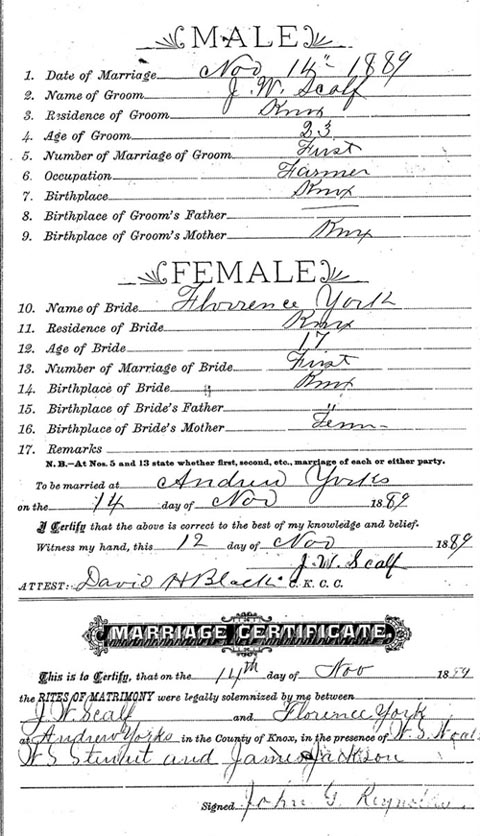 MALE
1. Date of Marriage Nov 14th 1889
2. Name of Groom J. W. Scalf
3. Residence of Groom Knox
4. Age of Groom 23
5. Number of Marriage of Groom First
6. Occupation Farmer
7. Birthplace Knox
8. Birthplace of Groom's Father
9. Birthplace of Groom's Mother Knx
FEMALE
10. Name of Bride Florrence York
11. Residence of Bride Knox
12. Age of Bride 17
13. Number of Marriage of Bride First
14. Birthplace of Bride Knox
15. Birthplace of Bride's Father "
16. Birthplace of Bride's Mother Tenn
17. Remarks
N.B.—At Nos. 5 and 13 state whether first, second, etc., marriage of each or either party.
To be married at Andrew Yorks
on the 14 day of Nov 1889
I Certify that the above is correct to the best of my knowledge and belief.
Witness my hand, this 12 day of Nov 1889
J. W. Scalf
ATTEST: David H Black C. K. C. C.
MARRIAGE CERTIFICATE.
This is to Certify, that on the 14th day of Nov 1889
the RITES OF MATRIMONY were legally solemnized by me between
J W Scalf and Florence York
at Andrew Yorks in the County of Knox, in the presence of W. S.
W S and James Jackson
Signed John G. Reynolds